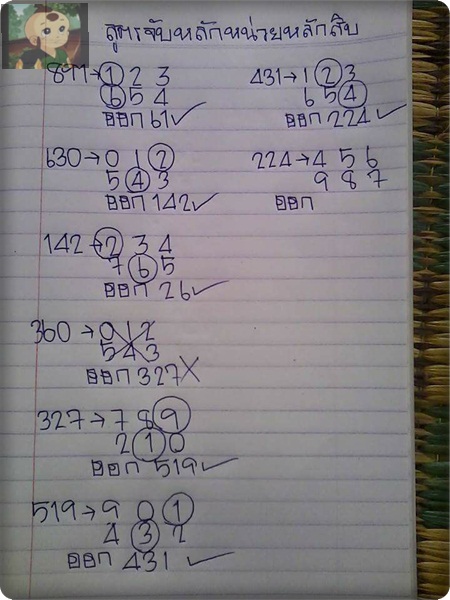 สูตรจับหลักหน่วยหลักสิบ
891→1 2 3
6 5 4
ออก 61✓
630→0 1 2
5 4 3
ออก 142✓
142→2 3 4
7 6 5
ออก 26✓
360→0 1 2
5 4 3
ออก 327X
327→7 8 9
2 1 0
ออก 519✓
519→9 0 1
4 3 2
ออก 431✓
431→1 2 3
6 5 4
ออก 224✓
224→4 5 6
9 8 7
ออก